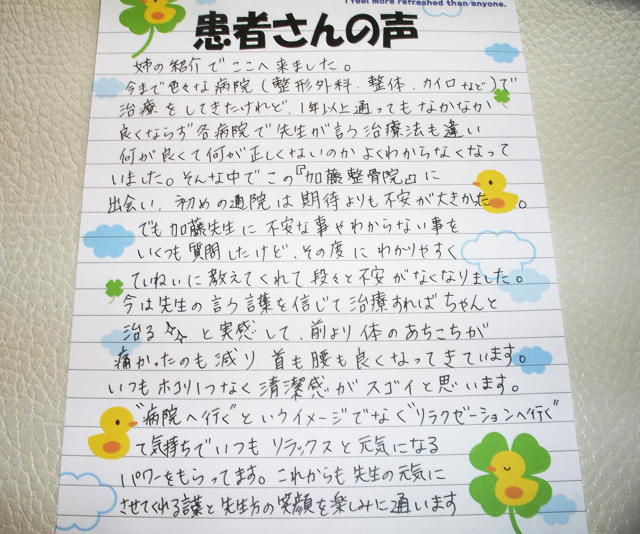 I feel more refreshed than anyone.
患者さんの声
姉の紹介でここへ来ました。
今まで色々な病院(整形外科.整体.カイロなど)で
治療をしてきたけれど、1年以上通ってもなかなか
良くならず各病院で先生が言う治療法も違い
何が良くて何が正しくないのかよくわからなくなって
いました。そんな中でこの『加藤整骨院』に
出会い、初めの通院は期待よりも不安が大きかった。
でも加藤先生に不安な事やわからない事を
いくつも質問したけど、その度にわかりやすく
ていねいに教えてくれて段々と不安がなくなりました。
今は先生の言う言葉を信じて治療すればちゃんと
治る☆☆と実感して、前より体のあちこちが
痛かったのも減り首も腰も良くなってきています。
いつもホコリ1つなく清潔感がスゴイと思います。
"病院へ行く"というイメージでなく"リラクゼーションへ行く"
て気持ちでいつもリラックスと元気になる
パワーをもらってます。これからも先生の元気に
させてくれる言葉と先生方の笑顔を楽しみに通います